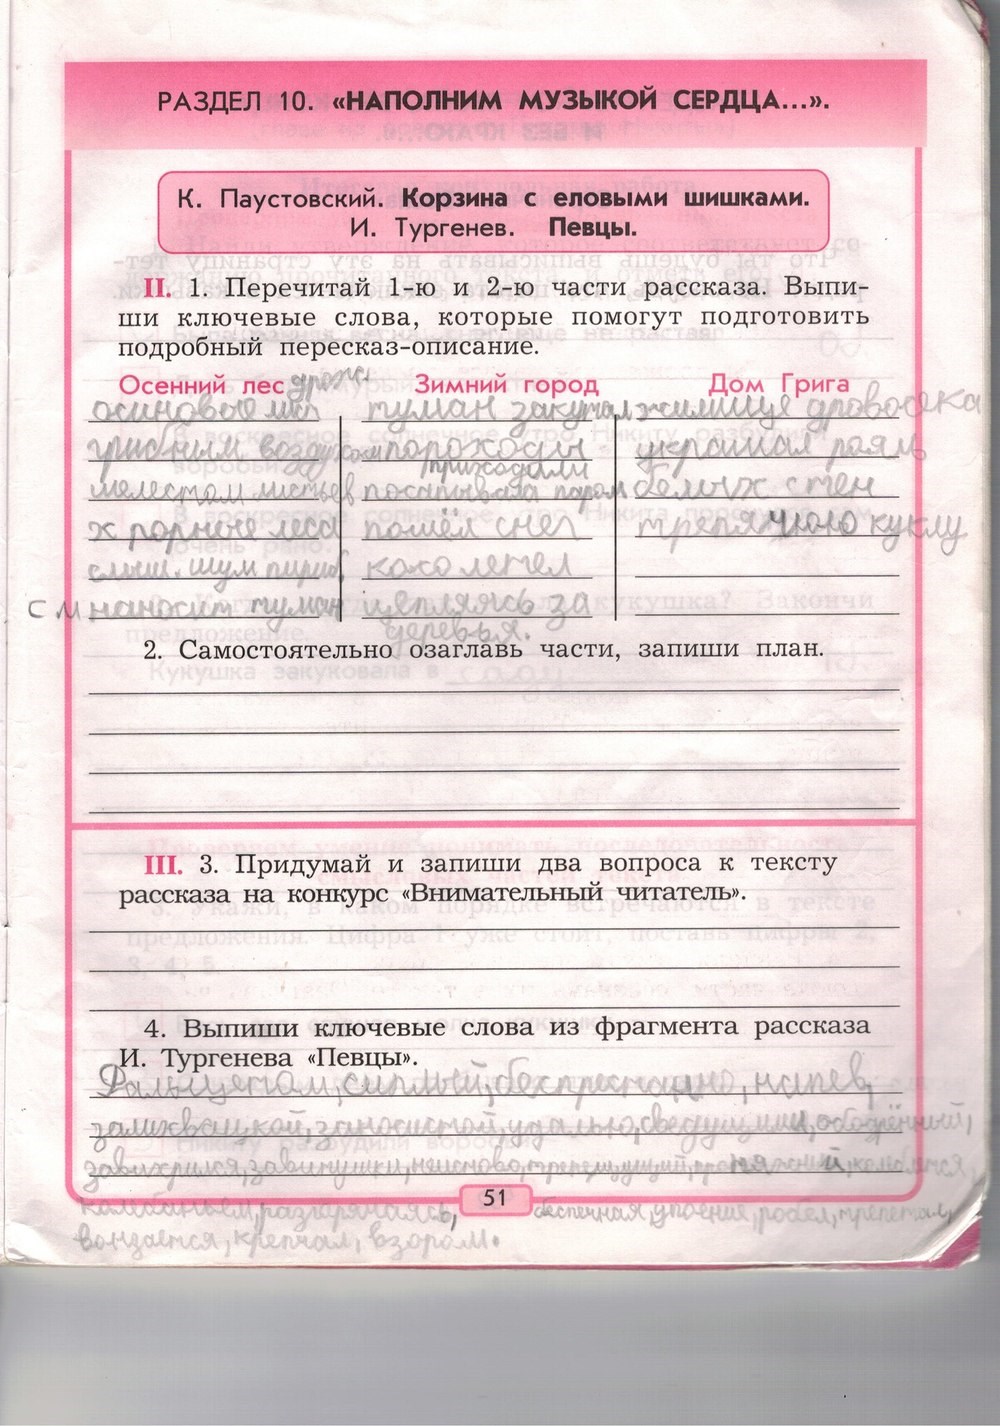 РАЗДЕЛ 10. «НАПОЛНИМ МУЗЫКОЙ СЕРДЦА...».
К. Паустовский. Корзина с еловыми шишками.
И. Тургенев. Певцы.
II. 1. Перечитай 1-ю и 2-ю части рассказа. Выпи-
ши ключевые слова, которые помогут подготовить
подробный пересказ-описание.
Осенний лес Зимний город Дом Грига
осиновые туман закутал жилище дровосека
грибным воздухом пороходы украшал рояль
приходили
шелестом листьев посапывала паром белых стен
леса пошёл снег тряпичную куклу
шум косо летел
наносит туман цепляясь за
деревья.
2. Самостоятельно озаглавь части, запиши план.
III. 3. Придумай и запиши два вопроса к тексту
рассказа на конкурс «Внимательный читатель».
4. Выпиши ключевые слова из фрагмента рассказа
И. Тургенева «Певцы».
Фальцетом, сиплый, беспрестанно, напев,
залихвацкой, заносистой, удалью, сведущими, ободрённый,
завихрился, завитушки, неистово,
разгорячаясь, беспечная, упоение, робел, трепетал,
вонзается, крепчал, взором.
51